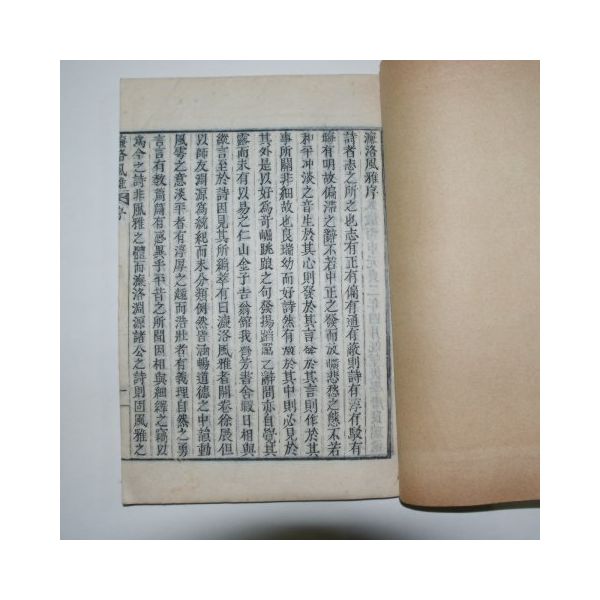 濂洛風雅序
詩者志之所之也志有正有偏有通有蔽則詩有淳有駁有
晦有明故偏滯之辭不若中正之發而放曠悲愁之態不若
和平沖淡之音生於其心則發於其言發於其言則作於其
事所關非細故也良瑞幼而好詩然有於其中則必見於
其外是以好為奇崛跳踉之句發揚蹈厲之辭間亦自覺其
露而未有以易之仁山金子吉翁館我齊芳書舍暇日相與
縱言至於詩因見其所編萃有曰濂洛風雅者開卷徐展但
以師友淵源為統紀而未分類例然皆涵暢道德之中諠動
風雩之意淡平者有淳厚之趣而浩壯者有義理自然之勇
言言有教篇篇有感異乎平昔之所聞因相與紬繹之竊以
為今之詩非風雅之體而濂洛淵源諸公之詩則固風雅之
濂洛風雅 序 一